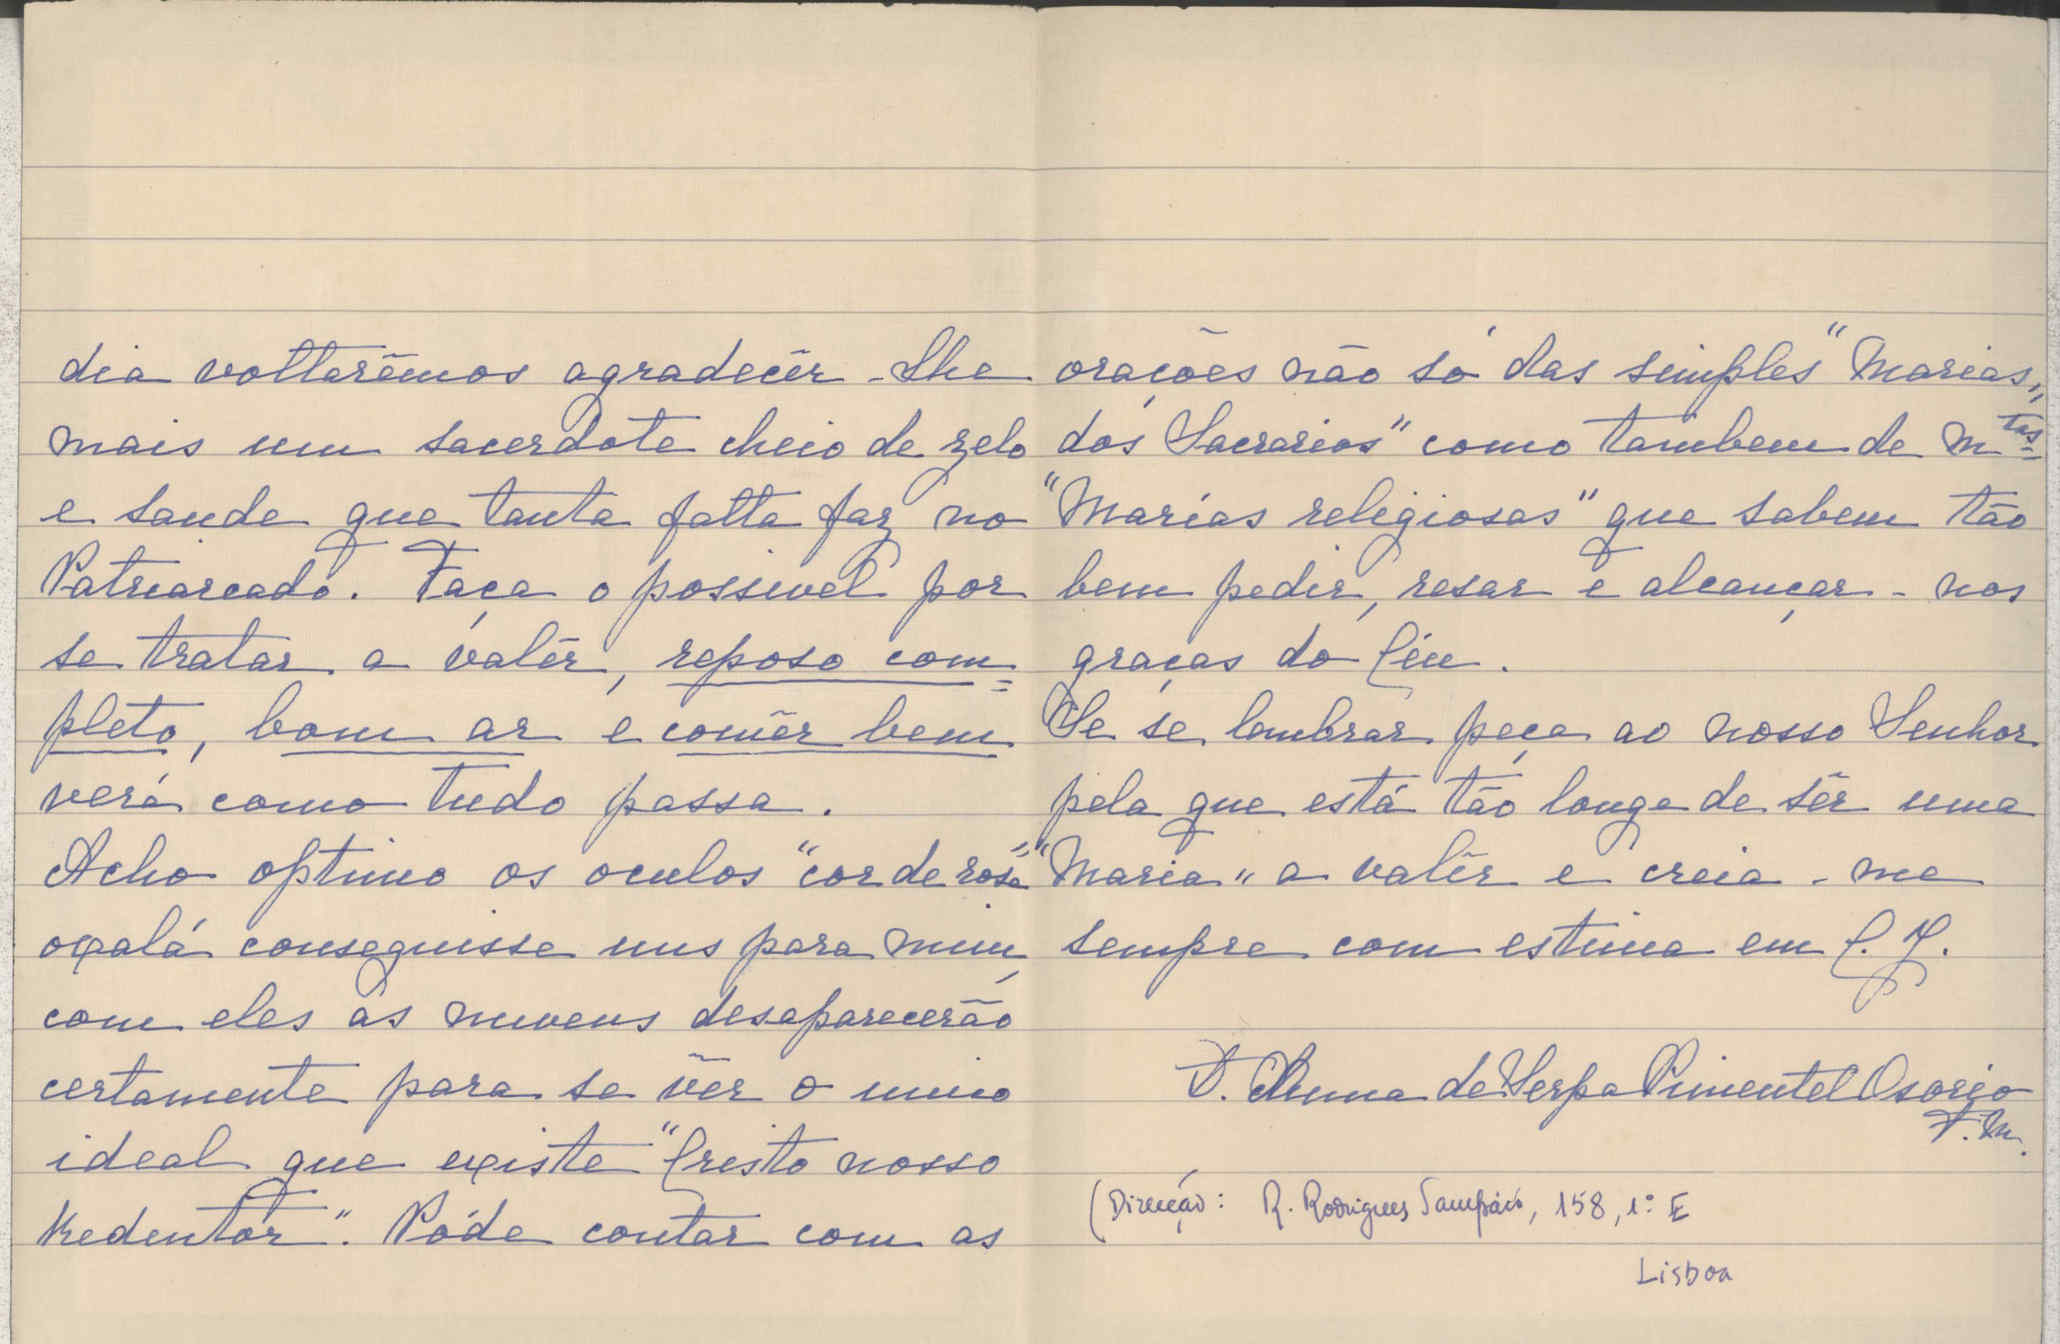 dia voltarêmos agradecêr-lhe
mais um sacerdote cheio de zelo
e saude que tanta falta faz no
Patriarcado. Faça o possivel por
se tratar a valêr, reposo com=
pleto, bom ar e comêr bem
verá como tudo passa.
Acho optimo os oculos "cor de rosa"
oxalá conseguisse uns para mim,
com eles as nuvens desaparecerão
certamente para se vêr o unico
ideal que existe "Cristo nosso
Redentor". Póde contar com as
orações não só das simples "Marias,,
dos Sacrarios" como tambem de mtas=
"Marias religiosas" que sabem tão
bem pedir, resar e alcançar-nos
graças do Céu.
Se se lembrar peça ao nosso Senhor
pela que está tão longe de sêr uma
"Maria" a valêr e creia-me
sempre com estima em C. J.
Anna de Serpa Pimentel Osorio
F. M.
(Direcção: R. Rodrigues Sampaio, 158, 1º E
Lisboa